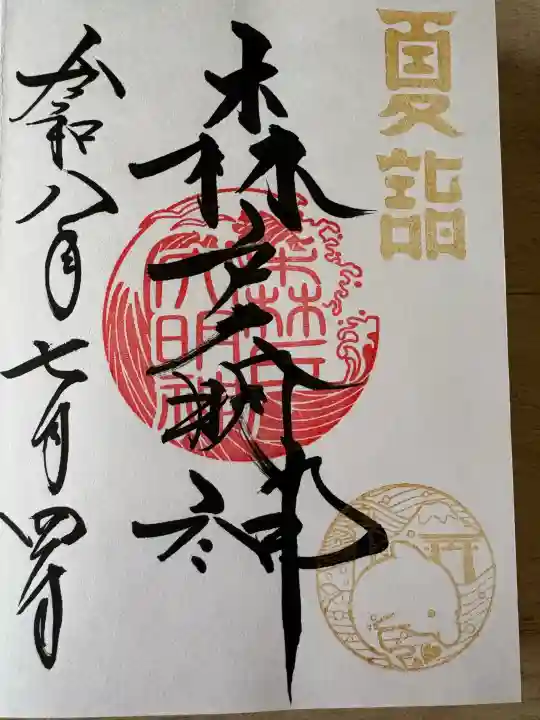 夏詣
森戸大明神
森戸大明神
令和八年七月四日